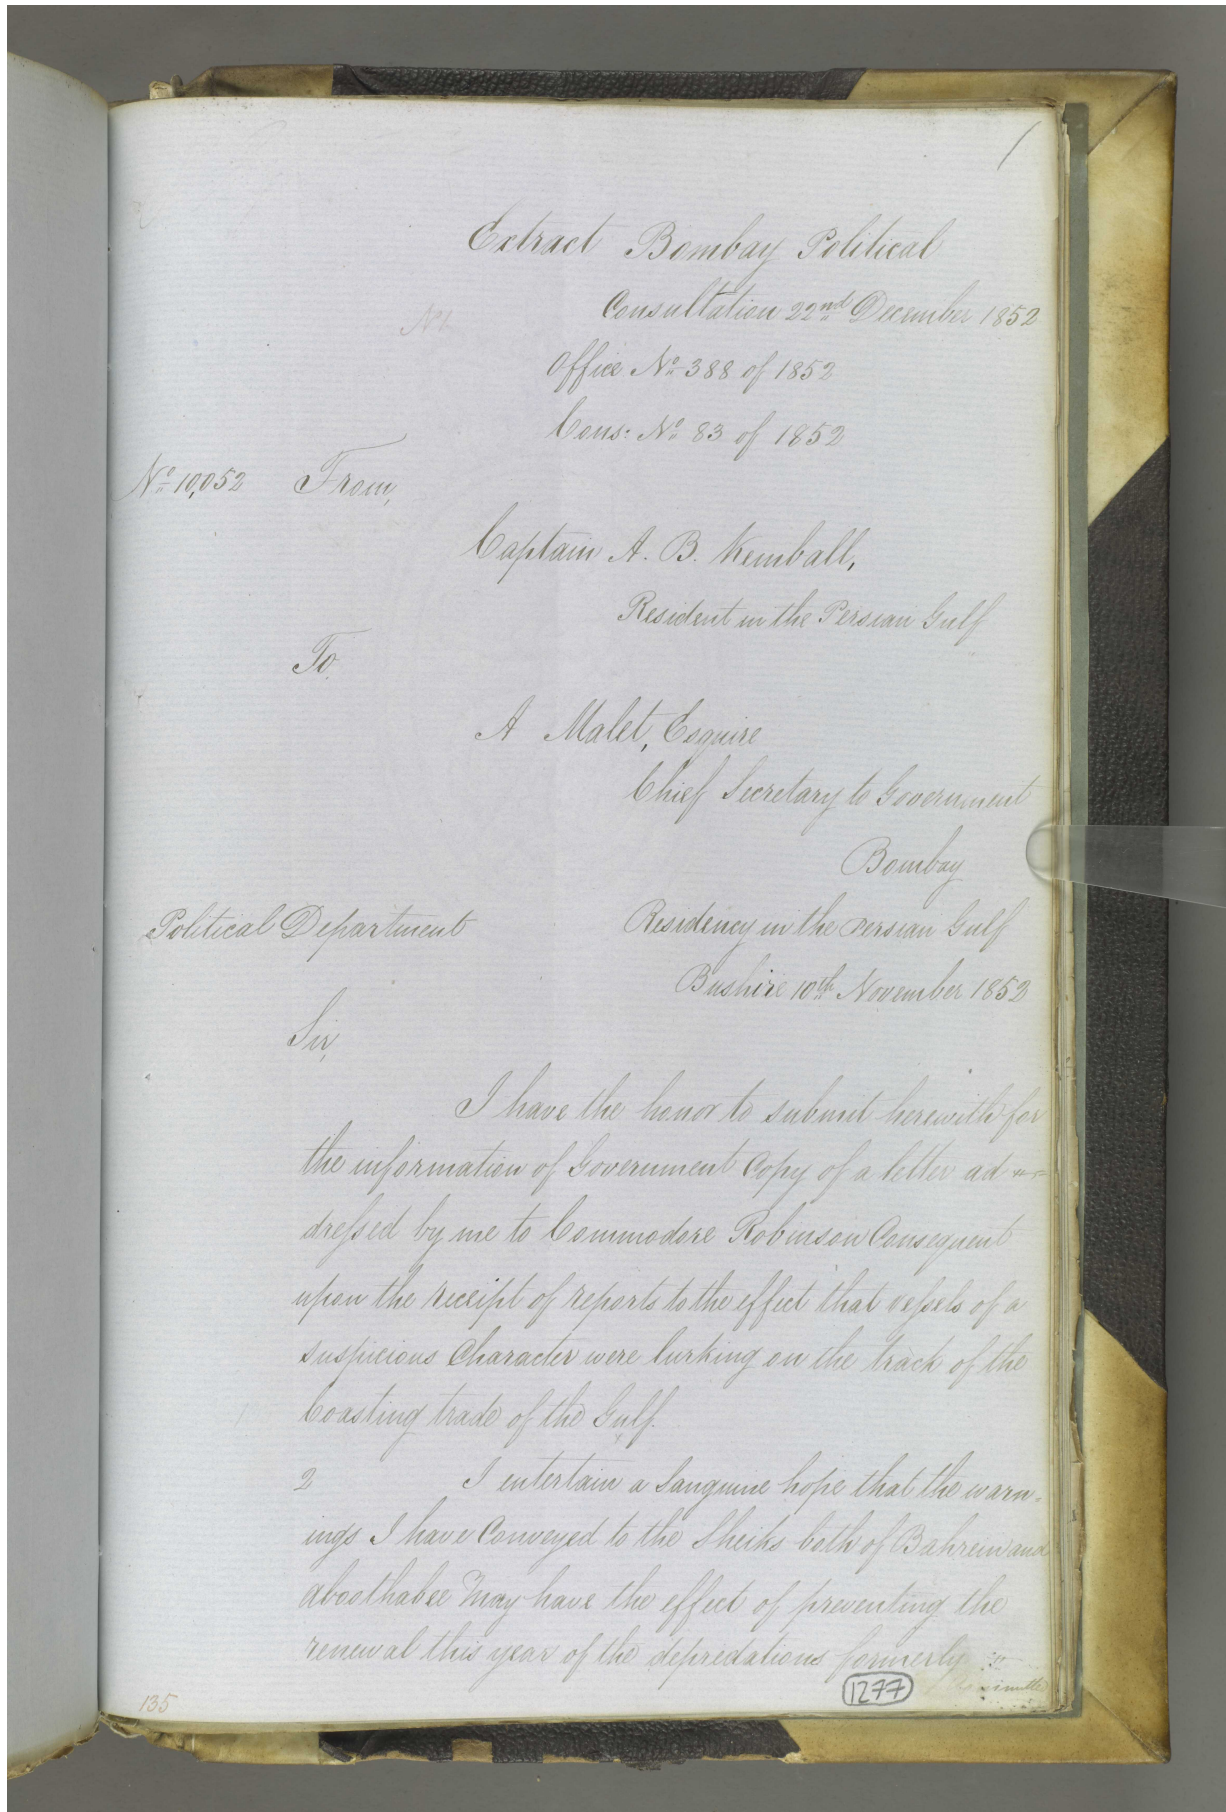 1
Extract Bombay Political
Consultation 22nd December 1852
No 1
Office No 388 of 1852
Cons: No 83 of 1852
No 10,052 From,
Captain A. B. Kemball,
Resident in the Persian Gulf
To,
A Malet, Esquire
Chief Secretary to Government
Bombay
Political Department Residency in the Persian Gulf
Bushire 10th November 1852
Sir,
I have the honor to submit herewith for
the information of Government Copy of a letter ad
dressed by me to Commodore Robinson Consequent
upon the receipt of reports to the effect that vessels of a
suspicious Character were lurking on the track of the
Coasting trade of the Gulf.
2 I entertain a Sanguine hope that the warn-
ings I have Conveyed to the Sheiks both of Bahrein and
Aboothabee may have the effect of preventing the
renewal this year of the depredations formerly
1277
135